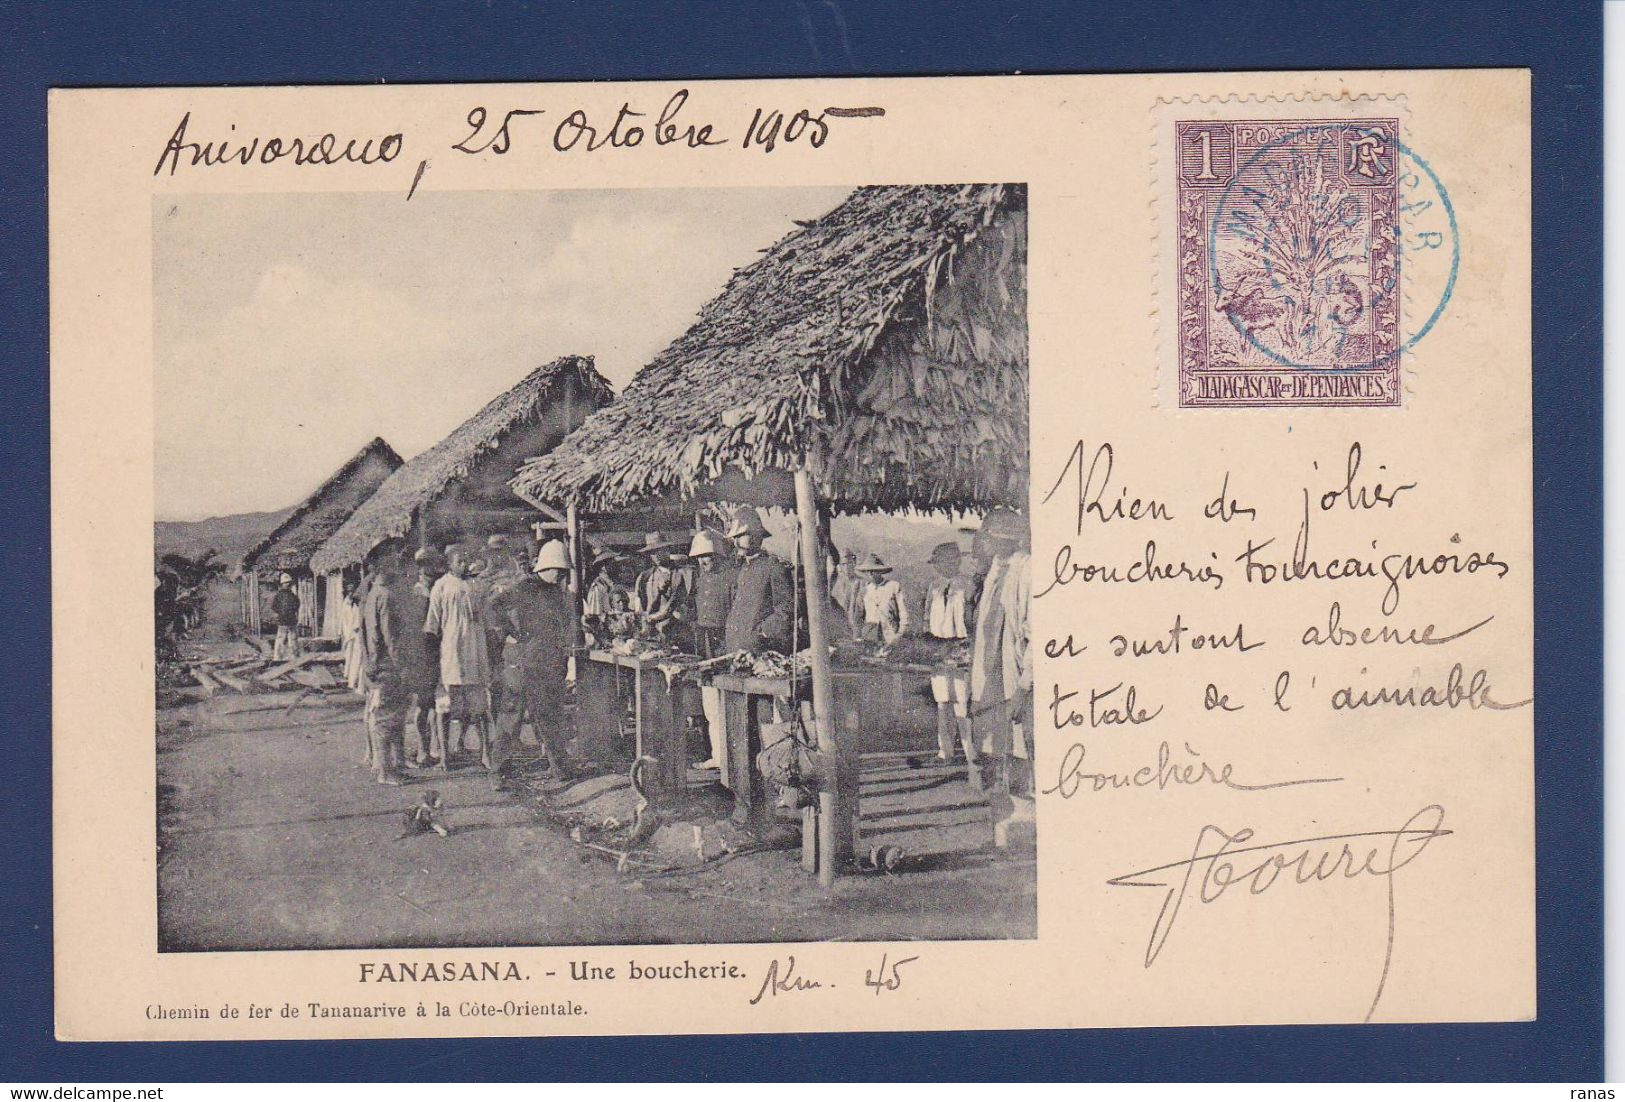 Anivorano, 25 Octobre 1905
1 POSTES RF
MADAGASCAR
MADAGASCAR ET DÉPENDANCES
Rien des jolies
boucheries Tourcaignoises
et surtout absence
totale de l'aimable
bouchère
FANASANA. - Une boucherie. Km. 45
Chemin de fer de Tananarive à la Côte-Orientale.
ranas